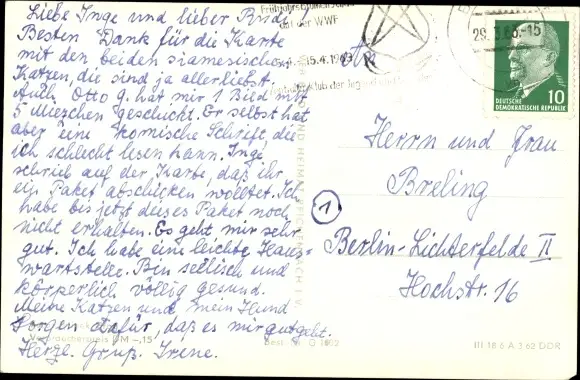 Liebe Inge und lieber Rudi
Besten Dank für die Karte
mit den beiden siamesischen
Katzen, die sind ja allerliebst.
Auch Otto g. hat mir 1 Bild mit
5 Miezchen geschickt. Er selbst hat
aber eine komische Schrift, die
ich schlecht lesen kann. Inge
schrieb auf der Karte, daß ihr
ein Paket abschicken wolltet. Ich
habe bis jetzt dieses Paket noch
nicht erhalten. Es geht mir sehr
gut. Ich habe eine leichte Haus=
wartstelle. Bin seelisch und
körperlich völlig gesund.
Meine Katzen und mein Hund
sorgen dafür, daß es mir gut geht.
Herzl. Gruß Irene.
der WWF
15.4.1963
10
DEUTSCHE
DEMOKRATISCHE REPUBLIK
An
Herrn und Frau
Breling
1
Berlin-Lichterfelde II
Hochstr. 16
Verbraucherpreis DM -,15
III 18 6 A 3 62 DDR